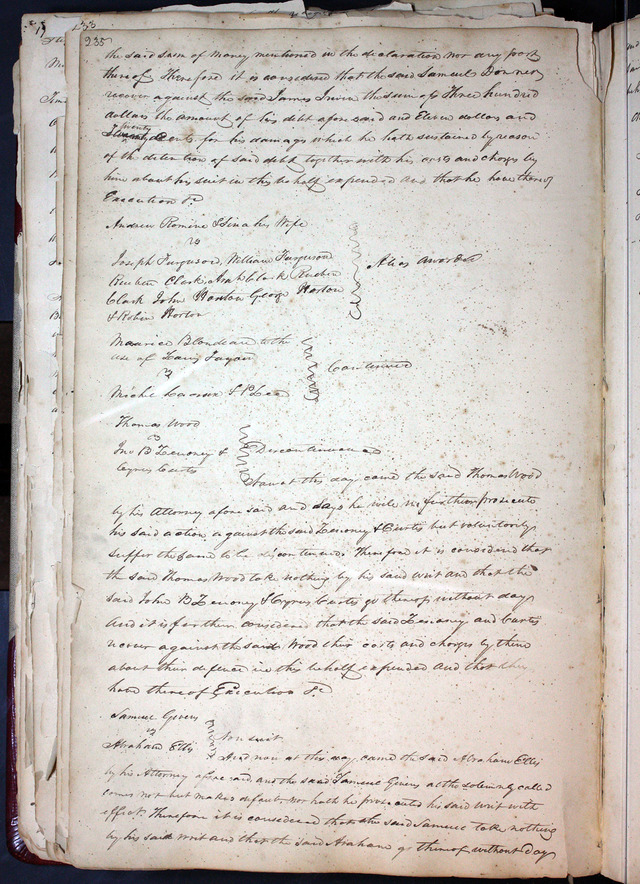 235
the said sum of money mentioned in the declaration nor any part
thereof Therefore it is considered that the said Samuel
recover against the said James Irwin the sum of Three hundred
dollars the amount of his debt aforesaid and Eleven dollars and
twenty cents for his damages which he hath sustained by reason
of the detention of said debt together with his costs and charges by
him about his suit in this behalf expended and that he have thereof
Execution &c
Andrew Romine & his Wife
vs
Joseph Furguson, William Furguson
Reuben Clark, Clark Reuben
Clark John Horton George Horton
& Robin Horton
Alias awarded
Maurice Blondeau to the
use of
vs
Michl &
Continued
Thomas Wood
vs
Jno B Zenoney &
Cyrus Curtis
Discontinuance
And now at this day came the said Thomas Wood
by his Attorney aforesaid and says he will no further prosecute
his said action against the said Zenoney & Curtis but voluntarily
suffer the same to be discontinued. Therefore it is considered that
the said Thomas Wood take nothing by his said writ and that the
said John B Zenoney & Cyrus Curtis go thereof without day
And it is further considered that the said Zenoney and Curtis
recover against the said Wood their costs and charges by them
about their defence in this behalf expended and that they
have thereof Execution &c
Samuel Givens
vs
Abraham Ellis
Non suit
And now at this day came the said Abraham Ellis
by his Attorney aforesaid and the said Samuel Givens altho solemnly called
comes not but makes default nor hath he prosecuted his said writ with
effect. Therefore it is considered that the said Samuel take nothing
by his said writ and that the said Abraham go thereof without day